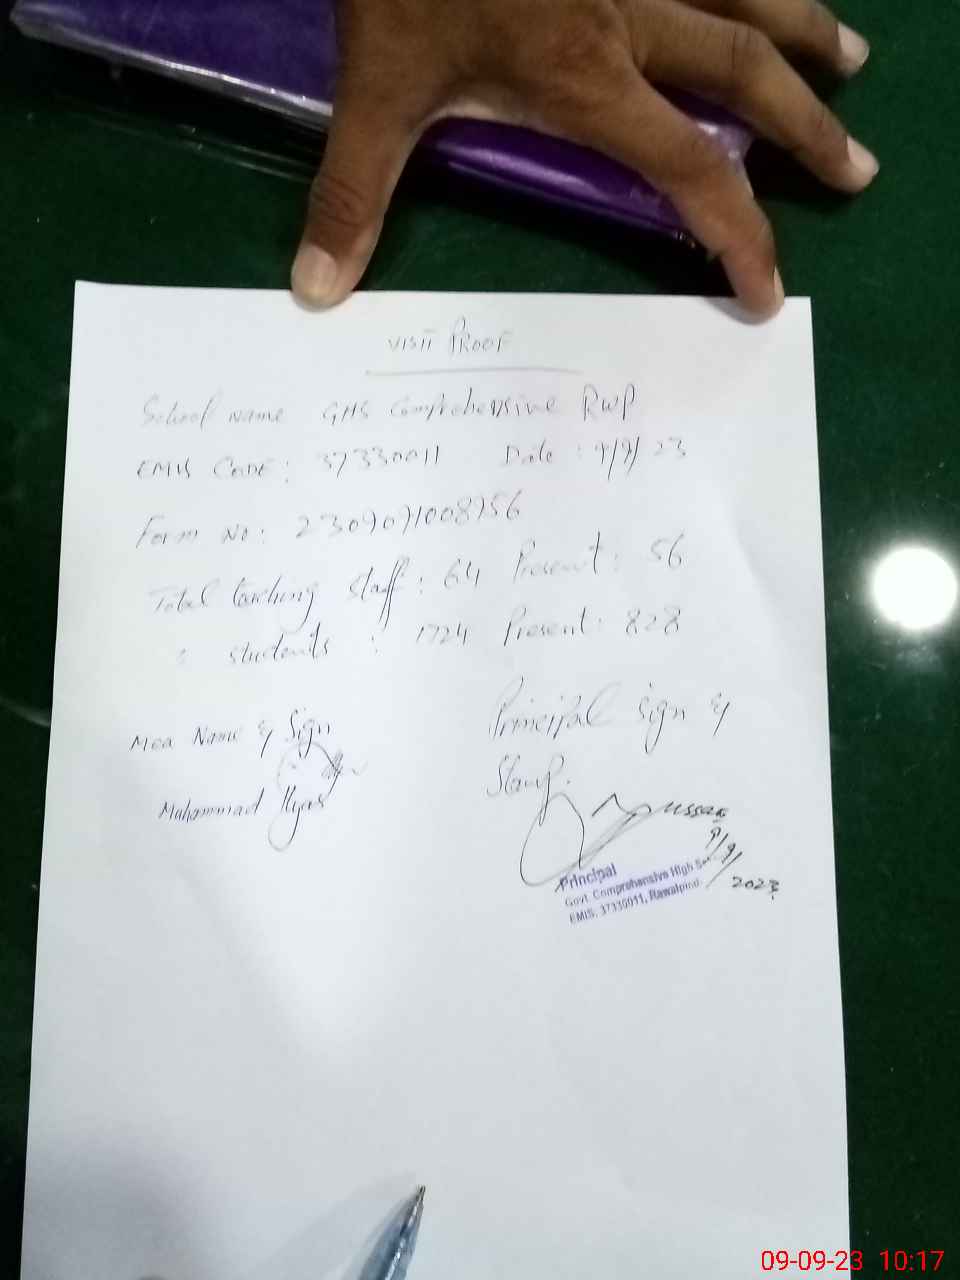 VISIT PROOF
School name GHS Comprehensive RWP
EMIS CODE: 37330011 Date: 9/9/23
Form No: 2309091008956
Total teaching Staff: 64 Present: 56
" students : 1724 Present: 828
Mea Name & Sign
Muhammad Ilyas
Principal Sign &
Stamp.
9/9/
2023
Principal
Govt. Comprehensive High
EMIS: 37330011, Rawalpindi.
09-09-23 10:17